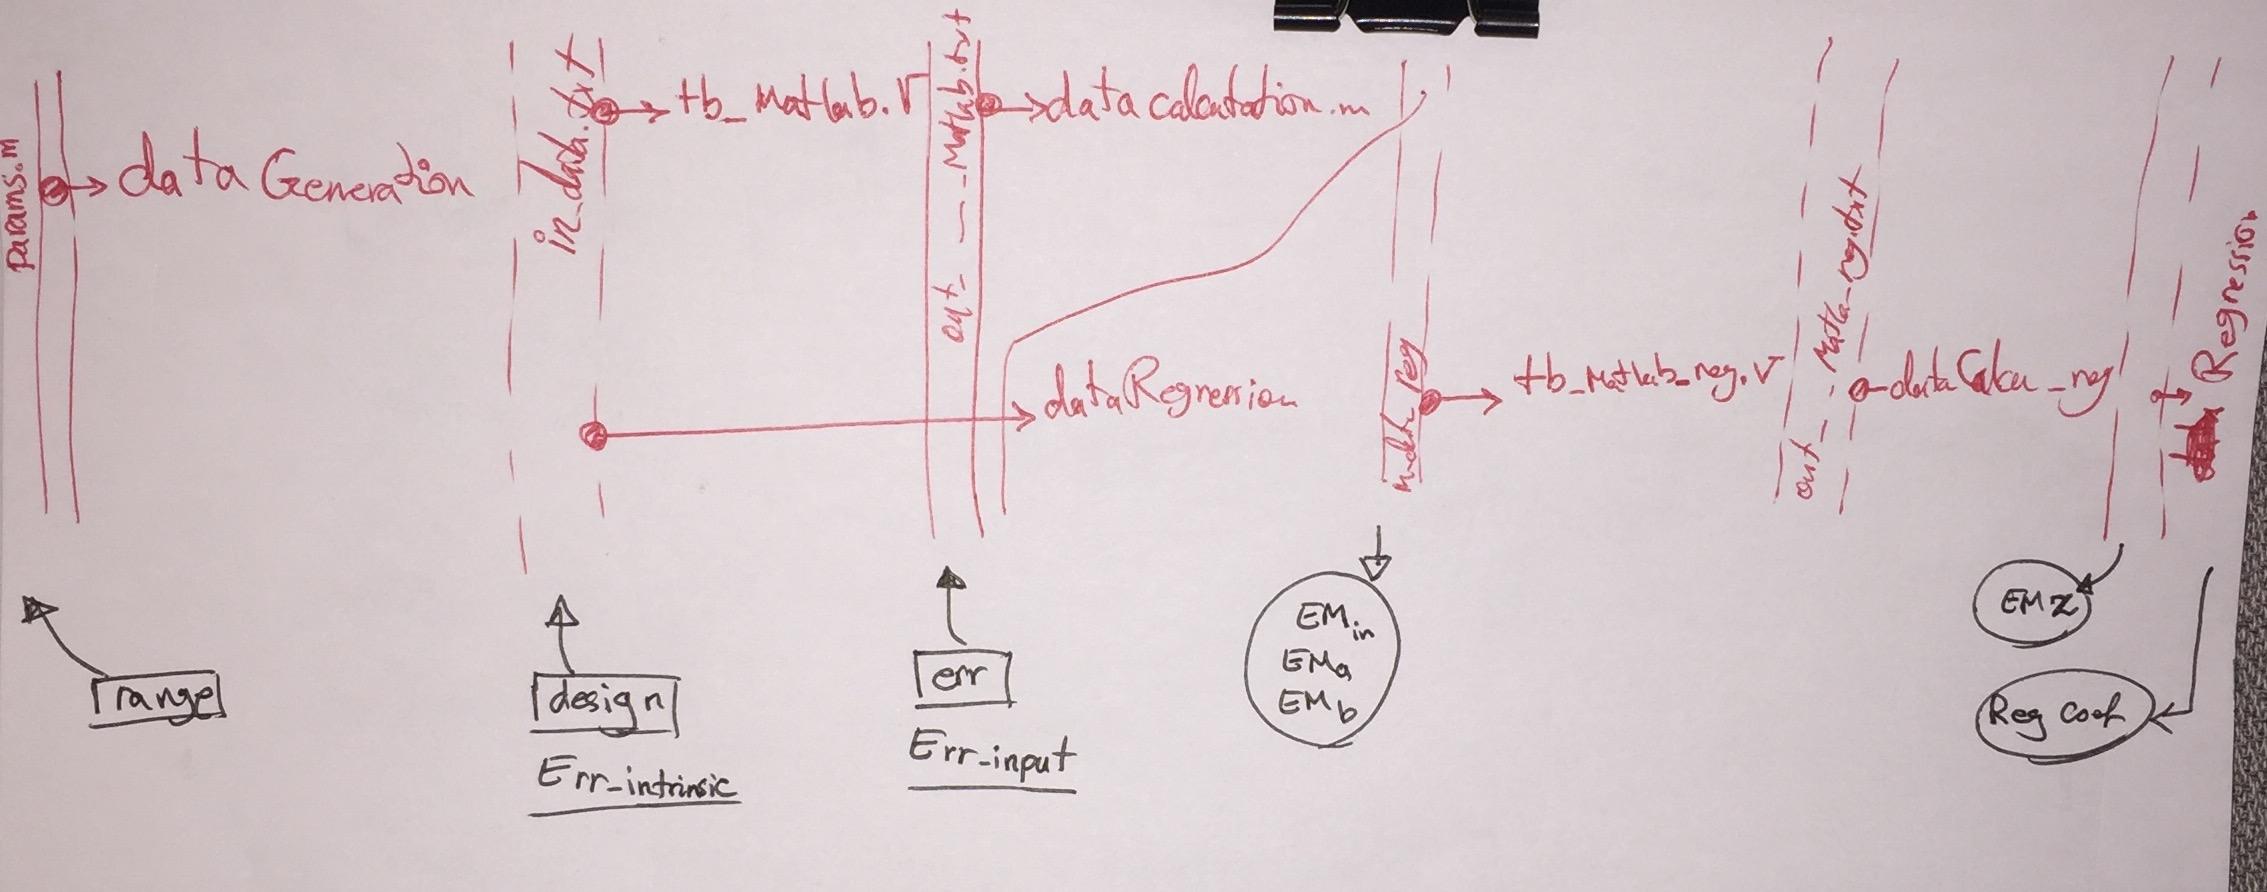 params.m
data Generation
in_data.txt
tb_Matlab.v
out_ _ _Matlab.txt
data calculation.m
data Regression
tb_Matlab_reg.v
out_ _ _Matla_reg.txt
dataCalcu_reg
Regression
range
design
Err_intrinsic
err
Err_input
EMin
EMa
EMb
EMz
Reg Coef